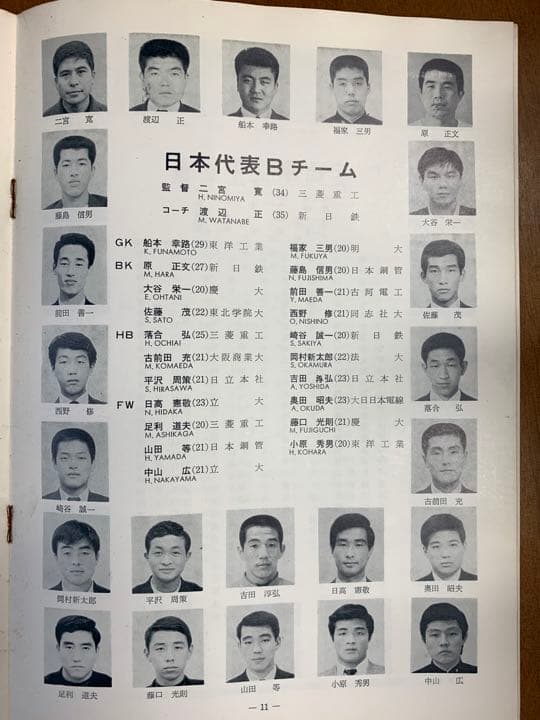 二宮 寛
渡辺 正
船本 幸路
福家 三男
原 正文
藤島 信男
大谷 栄一
日本代表Bチーム
監督 二宮 寛(34)三菱重工
H, NINOMIYA
コーチ 渡辺 正(35)新日鉄
M, WATANABE
GK 船本 幸路(29)東洋工業 福家 三男(20)明大
K, FUNAMOTO M, FUKUYA
BK 原 正文(27)新日鉄 藤島 信男(20)日本鋼管
M, HARA N, FUJISHIMA
大谷 栄一(20)慶大 前田 善一(21)古河電工
E, OHTANI Y, MAEDA
佐藤 茂(22)東北学院大 西野 修(21)同志社大
S, SATO O, NISHINO
HB 落合 弘(25)三菱重工 崎谷 誠一(20)新日鉄
H, OCHIAI S, SAKIYA
古前田 充(21)大阪商業大 岡村新太郎(22)法大
M, KOMAEDA S, OKAMURA
平沢 周策(21)日立本社 吉田 弘(23)日立本社
S, HIRASAWA A, YOSHIDA
FW 日高 憲敬(23)立大 奥田 昭夫(23)大日日本電線
N, HIDAKA A, OKUDA
足利 道夫(20)三菱重工 藤口 光則(21)慶大
M, ASHIKAGA M, FUJIGUCHI
山田 等(21)日本鋼管 小原 秀男(20)東洋工業
H, YAMADA H, KOHARA
中山 広(21)立大
H, NAKAYAMA
前田 善一
佐藤 茂
西野 修
落合 弘
崎谷 誠一
古前田 充
岡村新太郎
平沢 周策
吉田 淳弘
日高 憲敬
奥田 昭夫
足利 道夫
藤口 光則
山田 等
小原 秀男
中山 広
— 11 —